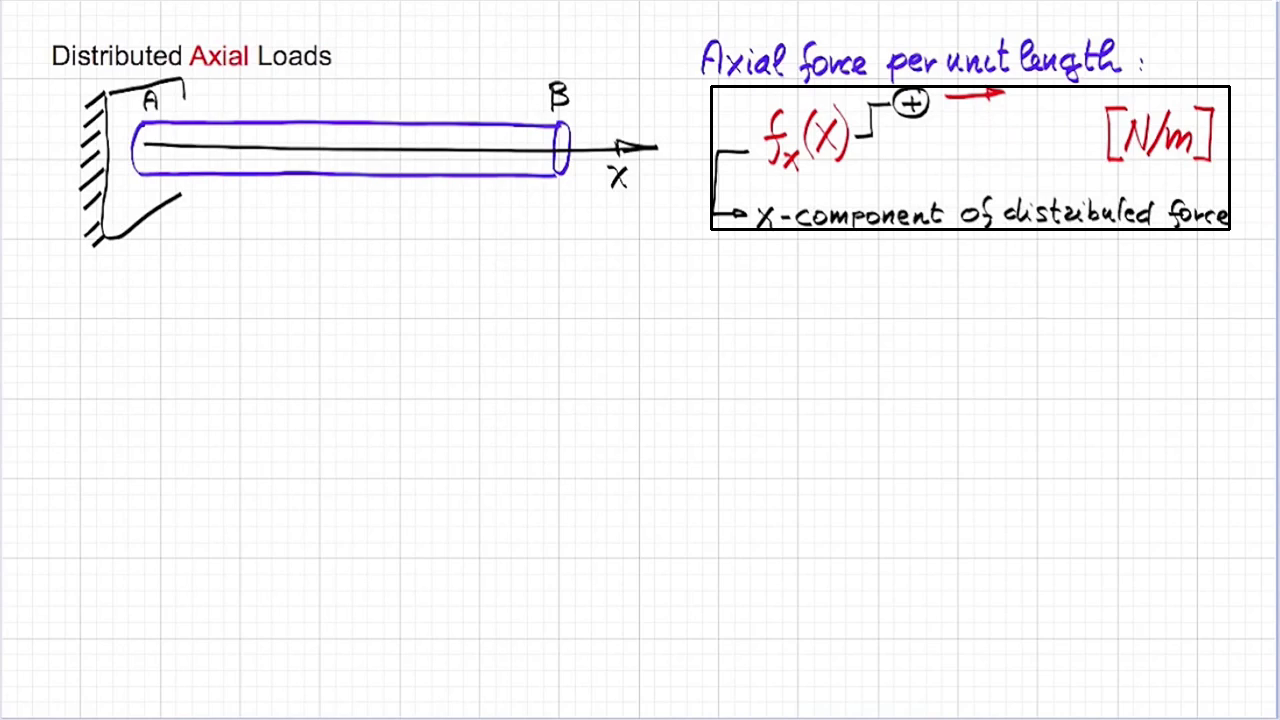 Distributed Axial Loads
Axial force per unit length :
A
B
x
fx(x) + [N/m]
x-component of distributed force